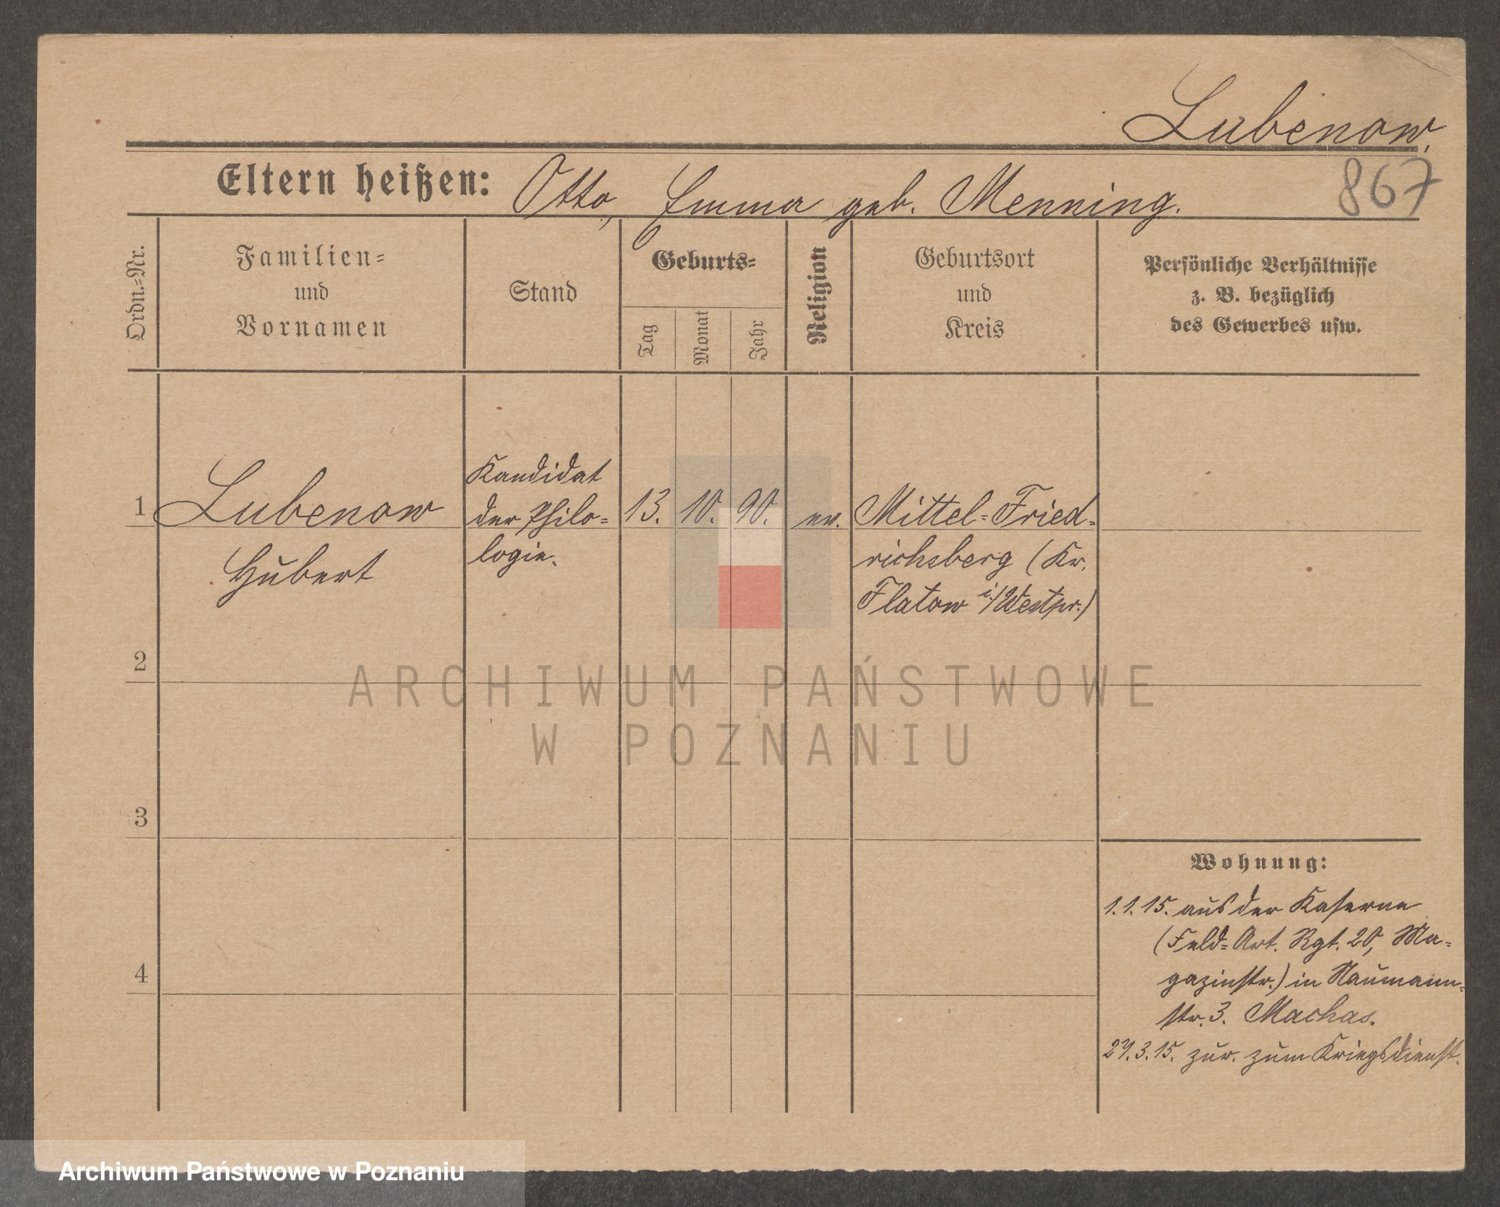 Lubenow.
867
Eltern heißen: Otto, Emma geb. Menning.
Ordn.-Nr.
Familien-
und
Vornamen
Stand
Geburts-
Tag
Monat
Jahr
Religion
Geburtsort
und
Kreis
Persönliche Verhältnisse
z. B. bezüglich
des Gewerbes usw.
1
Lubenow
Hubert
Kandidat
der Philo-
logie.
13. 10. 90.
ev.
Mittel-Fried-
richsberg (Kr.
Flatow i/Westpr.)
2
3
4
Wohnung:
1.1.15. aus der Kaserne
(Feld-Art. Rgt. 20, Ma-
gazinstr.) in Naumann-
str. 3. Machas.
27.3.15. zur. zum Kriegsdienst.
ARCHIWUM PAŃSTWOWE
W POZNANIU
Archiwum Państwowe w Poznaniu